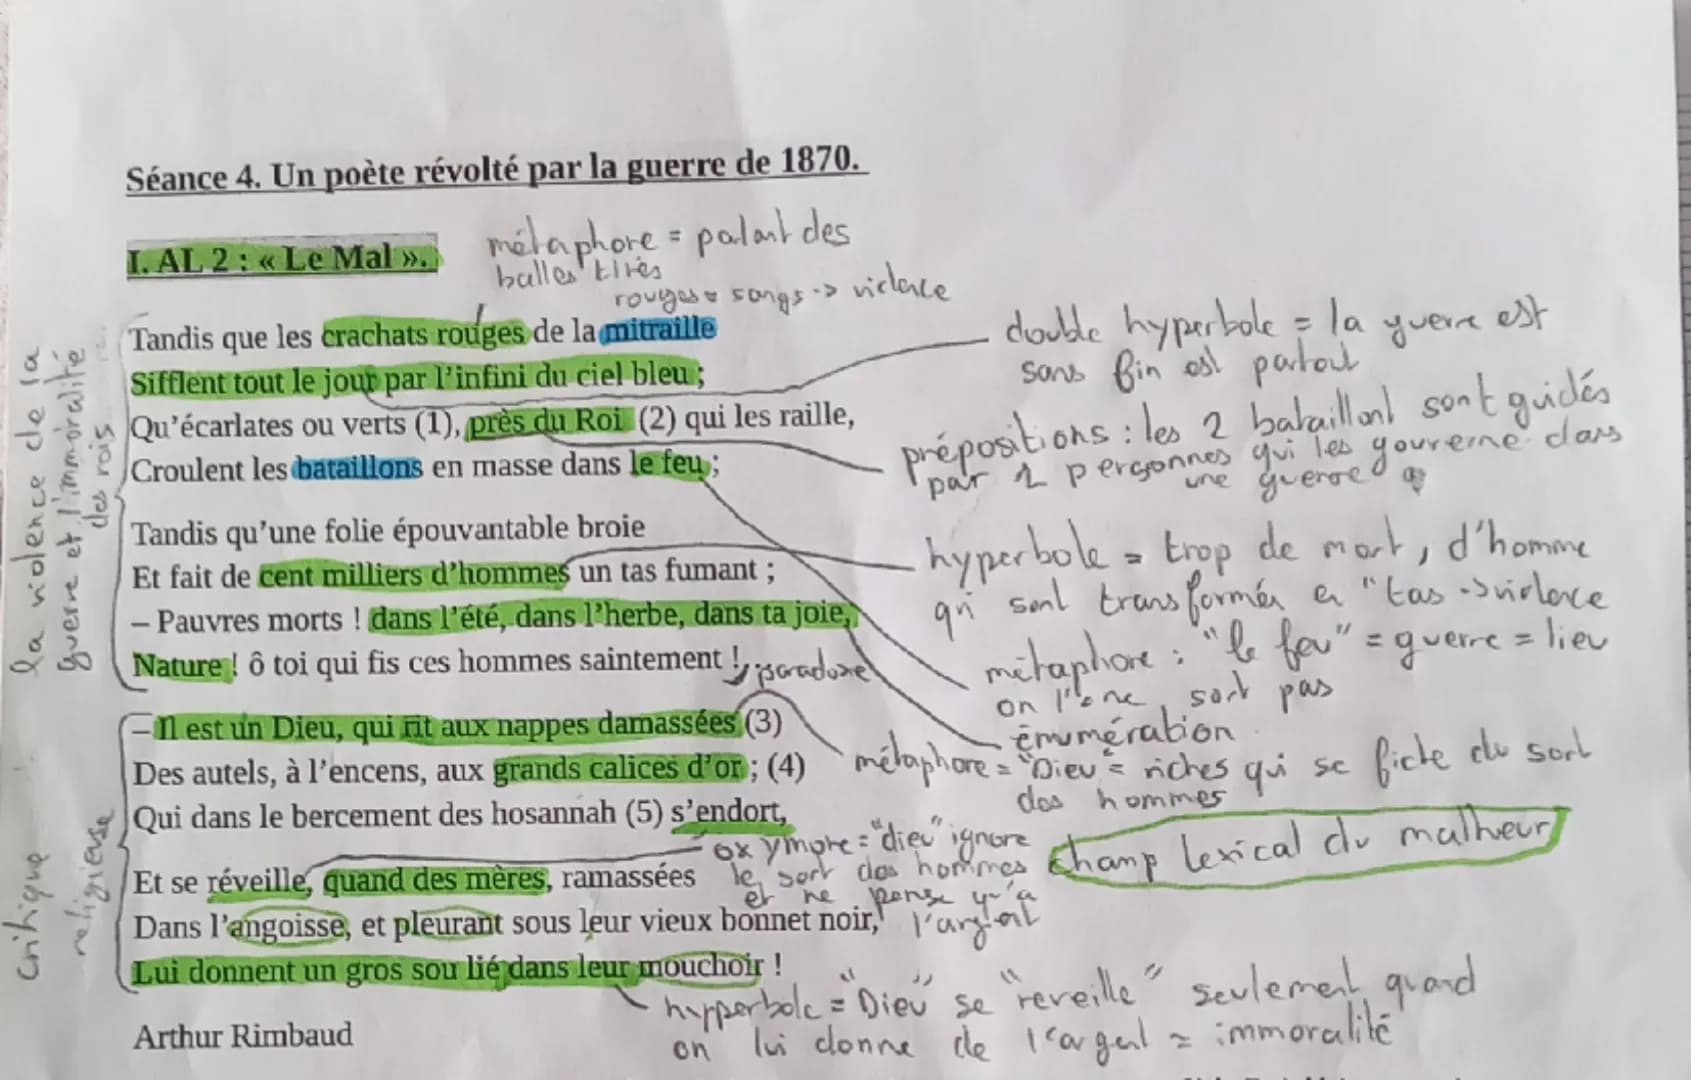 Séance 4. Un poète révolté par la guerre de 1870.
I. AL 2 : « Le Mal ».
métaphore = palant des
balles tirés
rouges = sangs -> violence
Tandis que les crachats rouges de la mitraille
Sifflent tout le jour par l'infini du ciel bleu ;
Qu'écarlates ou verts (1), près du Roi (2) qui les raille,
Croulent les bataillons en masse dans le feu ;
Tandis qu'une folie épouvantable broie
Et fait de cent milliers d'hommes un tas fumant ;
– Pauvres morts ! dans l'été, dans l'herbe, dans ta joie,
Nature ! ô toi qui fis ces hommes saintement !
paradoxe
– Il est un Dieu, qui rit aux nappes damassées (3)
Des autels, à l'encens, aux grands calices d'or ; (4)
Qui dans le bercement des hosannah (5) s'endort,
Et se réveille, quand des mères, ramassées
Dans l'angoisse, et pleurant sous leur vieux bonnet noir,
Lui donnent un gros sou lié dans leur mouchoir !
Arthur Rimbaud
la violence de la
guerre et l'immoralité
des rois
critique
religieuse
double hyperbole = la guerre est
sans fin est partout
prépositions : les 2 bataillont sont guidés
par 2 personnes qui les gouverne dans
une guerre
hyperbole = trop de mort, d'homme
qui sont transformés en "tas -> violence
métaphore : "le feu" = guerre = lieu
on l'one sort pas
énumération
métaphore = "Dieu" = riches qui se fiche du sort
des hommes
oxymore = "dieu" ignore
le sort des hommes
et ne pense qu'a
l'argent
champ lexical du malheur
hyperbole = "Dieu" se "reveille" seulement quand
on lui donne de l'argent = immoralité